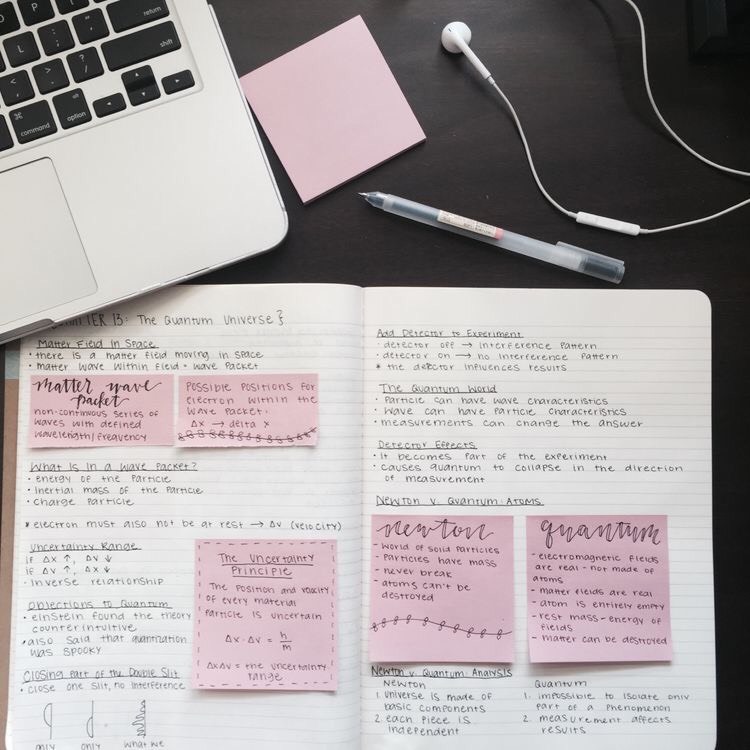 return
shift
alt
command
option
CHAPTER 13: The Quantum Universe }
Matter Field in Space
• there is a matter field moving in space
• matter wave within field = wave packet
matter wave
packet
non-continuous series of
waves with defined
wavelength/frequency
Possible positions for
electron within the
wave packet.
Δx → delta x
What is in a Wave Packet?
• energy of the particle
• inertial mass of the particle
• charge particle
* electron must also not be at rest → Δv (velocity)
Uncertainty Range
if Δx ↑, Δv ↓
if Δv ↑, Δx ↓
• inverse relationship
The Uncertainty
Principle
The position and velocity
of every material
particle is uncertain
Δx · Δv = h/m
ΔxΔv = the uncertainty
range
Objections to Quantum
• einstein found the theory
counterintuitive
• also said that quantization
was spooky
Closing part of the Double Slit
• close one slit, no interference
only
only
what we
Add Detector to Experiment
• detector off → interference pattern
• detector on → no interference pattern
* the detector influences results
The Quantum World
• particle can have wave characteristics
• wave can have particle characteristics
• measurements can change the answer
Detector Effects
• it becomes part of the experiment
• causes quantum to collapse in the direction
of measurement
Newton v. Quantum: Atoms
newton
- world of solid particles
- particles have mass
- never break
- atoms can't be
destroyed
quantum
- electromagnetic fields
are real - not made of
atoms
- matter fields are real
- atom is entirely empty
- rest mass - energy of
fields
- matter can be destroyed
Newton v. Quantum: Analysis
Newton
1. universe is made of
basic components
2. each piece is
independent
Quantum
1. impossible to isolate only
part of a phenomenon
2. measurement affects
results